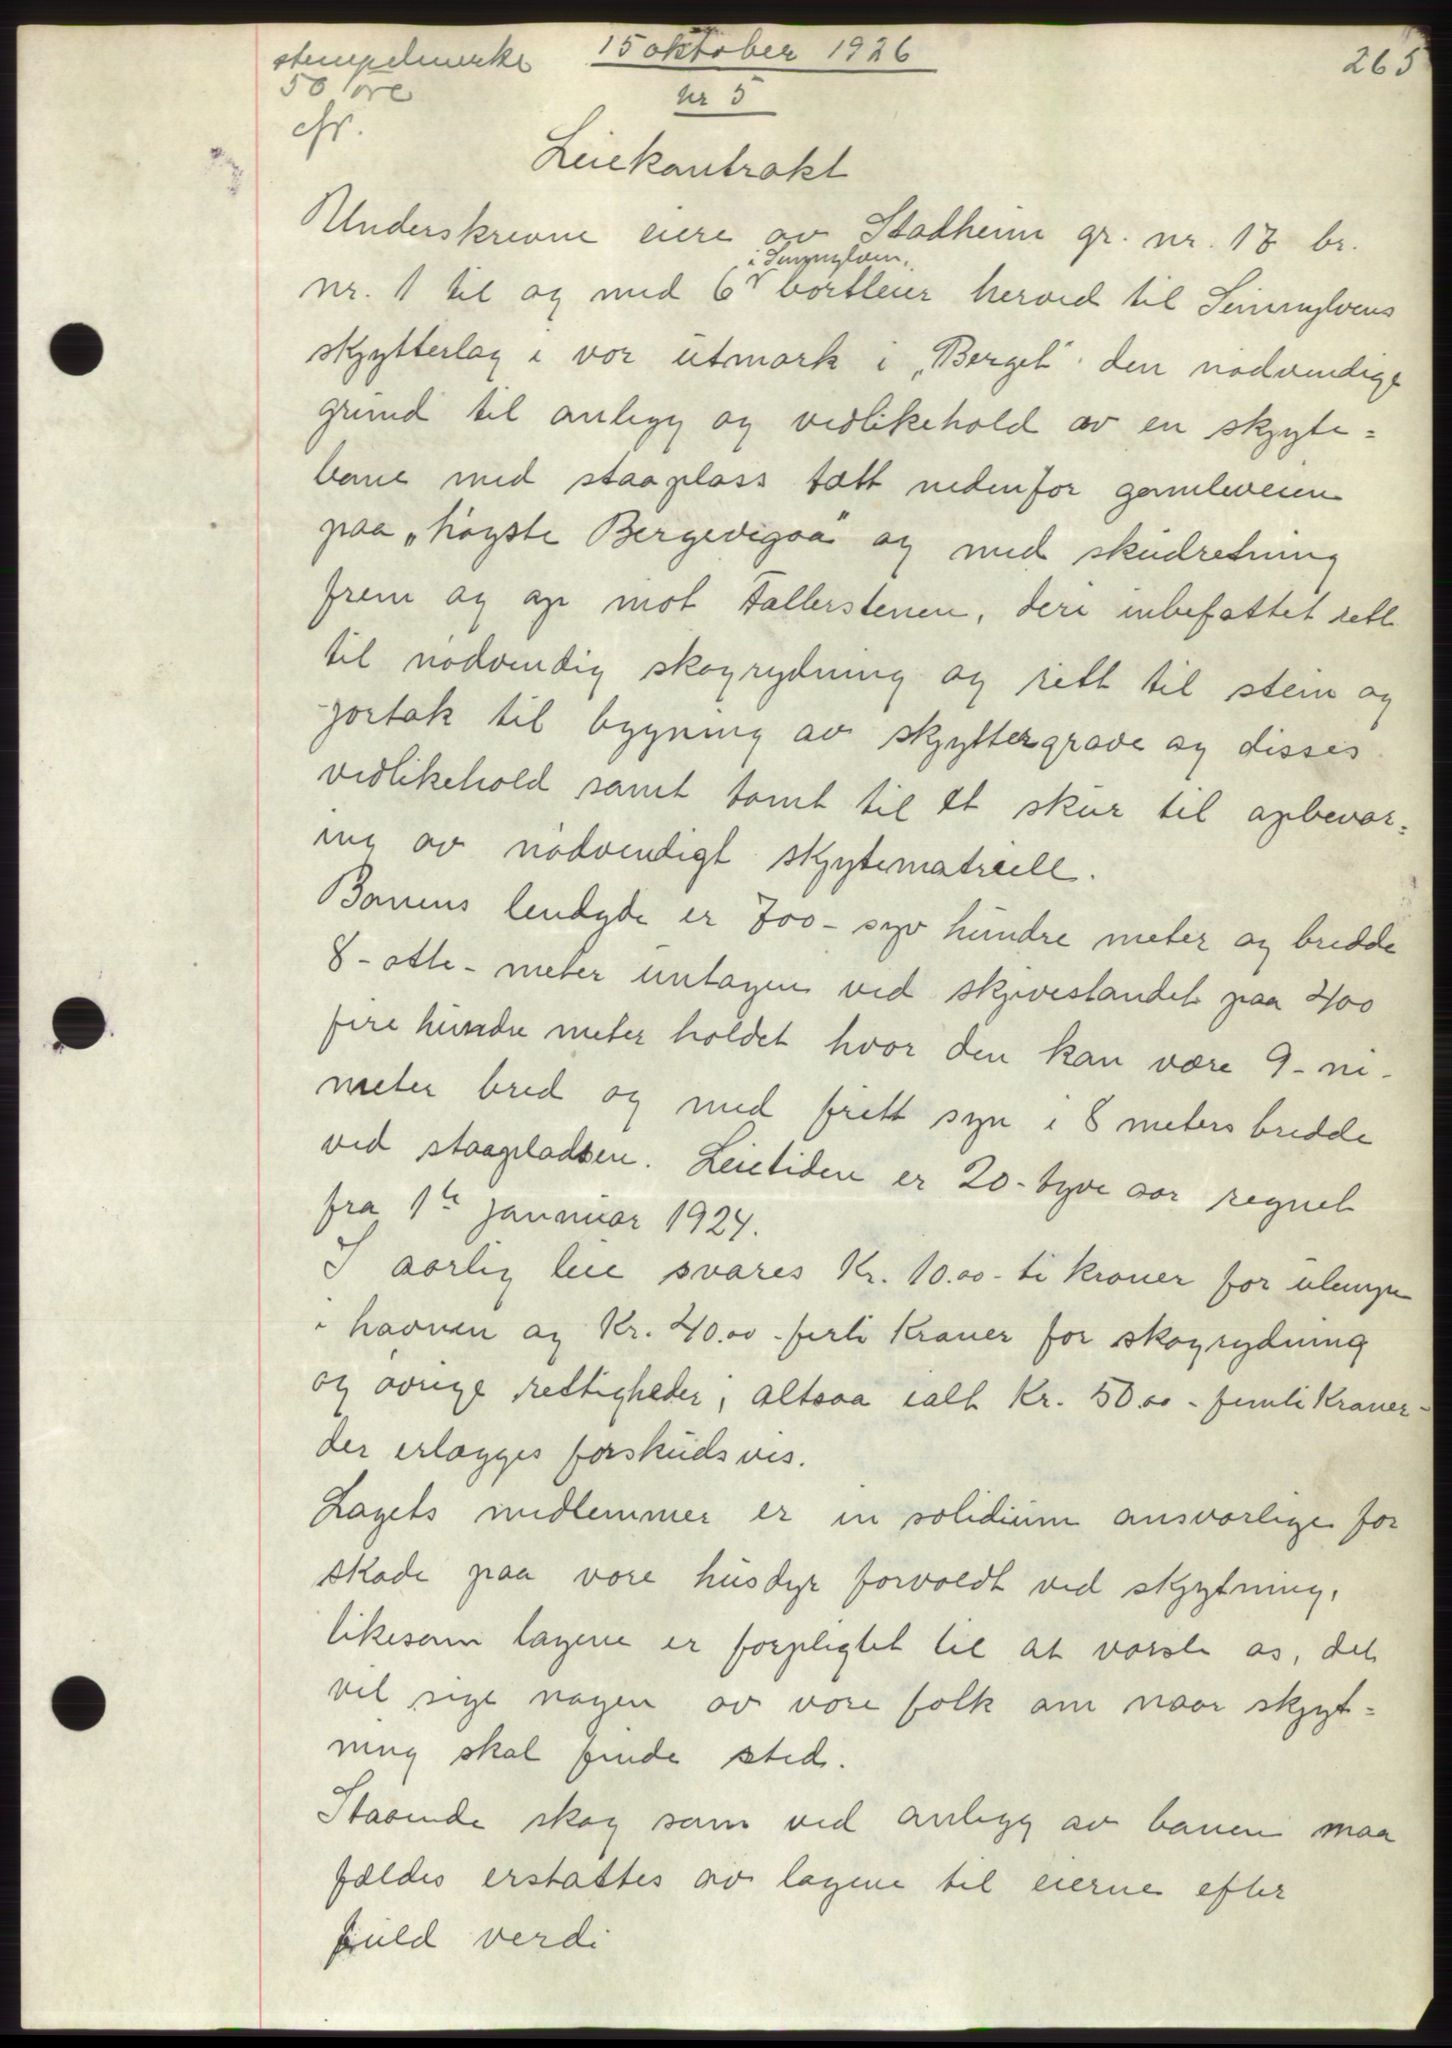 stempelmerke 15 oktober 1926 265
50 øre nr 5
Leiekontrakt
Underskrevne eiere av Stadheim gr. nr. 17 br.
i Sunnylven,
nr. 1 til og med 6 bortleier herved til Sunnylvens
skyttterlag i vor utmark i „Berget" den nødvendige
grund til anlegg og vedlikehold av en skyte=
bane med staaplass tætt nedenfor gamleveien
paa „høgste Bergevegaa" og med skudretning
frem og op mot Fallerstenen, deri inbefattet rett
til nødvendig skogrydning og rett til stein og
jortak til bygning av skyttergrave og disses
vedlikehold samt tomt til et skur til opbevar=
ing av nødvendigt skytematriell.
Banens lendgde er 700 - syv hundre meter og bredde
8 - otte - meter untagen ved skivestandet paa 400
fire hundre meter holdet hvor den kan være 9 - ni -
meter bred og med fritt syn i 8 meters bredde
ved staapladsen. Leietiden er 20 - tyve aar regnet
fra 1te januar 1924.
I aarlig leie svares Kr. 10.00 - ti kroner for ulempe
i havnen og Kr. 40.00 - førti Kroner for skogrydning
og øvrige rettigheder, altsaa ialt Kr. 50.00 - femti Kroner -
der erlægges forskudsvis.
Lagets medlemmer er in solidium ansvarlige for
skade paa vore husdyr forvoldt ved skytning,
likesom lagene er forpligtet til at varsle os, det
vil sige nogen av vore folk om naar skyt=
ning skal finde sted.
Staaende skog som ved anlegg av banen maa
fældes erstattes av lagene til eierne efter
fuld verdi